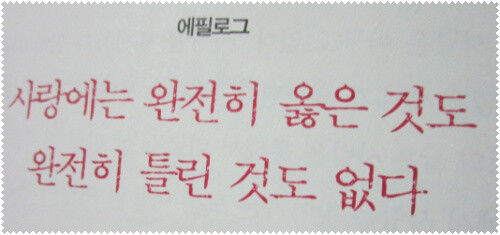 에필로그
사랑에는 완전히 옳은 것도
완전히 틀린 것도 없다